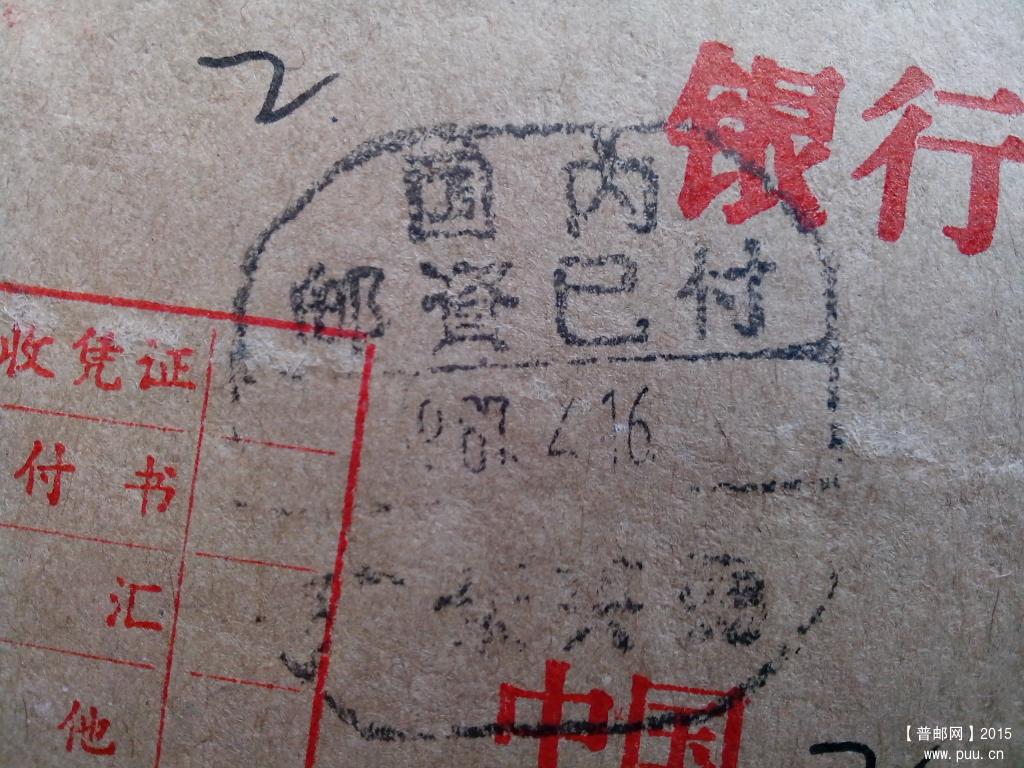 2
银行
国内
邮资已付
1987.4.16
收凭证
付书
汇
他
中国
【普邮网】2015
www.puu.cn